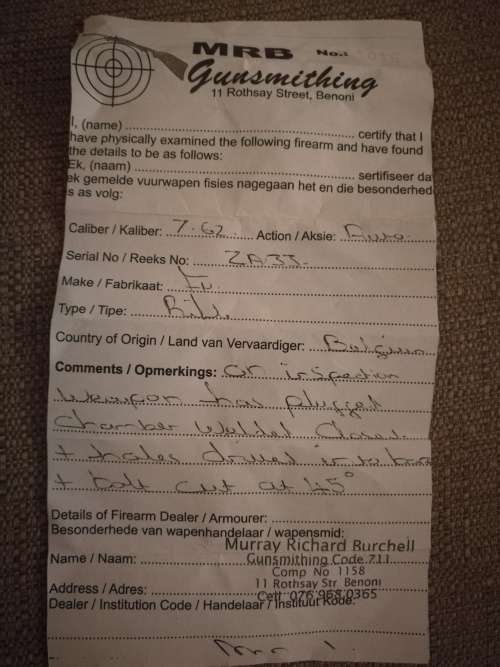 MRB No.:
Gunsmithing
11 Rothsay Street, Benoni
I, (name) ........ certify that I
have physically examined the following firearm and have found
the details to be as follows:
Ek, (naam) ........ sertifiseer dat
ek gemelde vuurwapen fisies nagegaan het en die besonderhed
s as volg:
Caliber / Kaliber: 7.62 Action / Aksie: Auto
Serial No / Reeks No: ZA33
Make / Fabrikaat: FN
Type / Tipe: Rifle
Country of Origin / Land van Vervaardiger: Belgium
Comments / Opmerkings: on inspection
weapon has plugged
chamber welded closed
+ holes drilled into
+ bolt cut at 45°
Details of Firearm Dealer / Armourer:
Besonderhede van wapenhandelaar / wapensmid:
Murray Richard Burchell
Gunsmithing Code 711
Name / Naam:
Comp No 1158
11 Rothsay Str. Benoni
Address / Adres:
Cell 076 968 0365
Dealer / Institution Code / Handelaar / Instituut Kode: